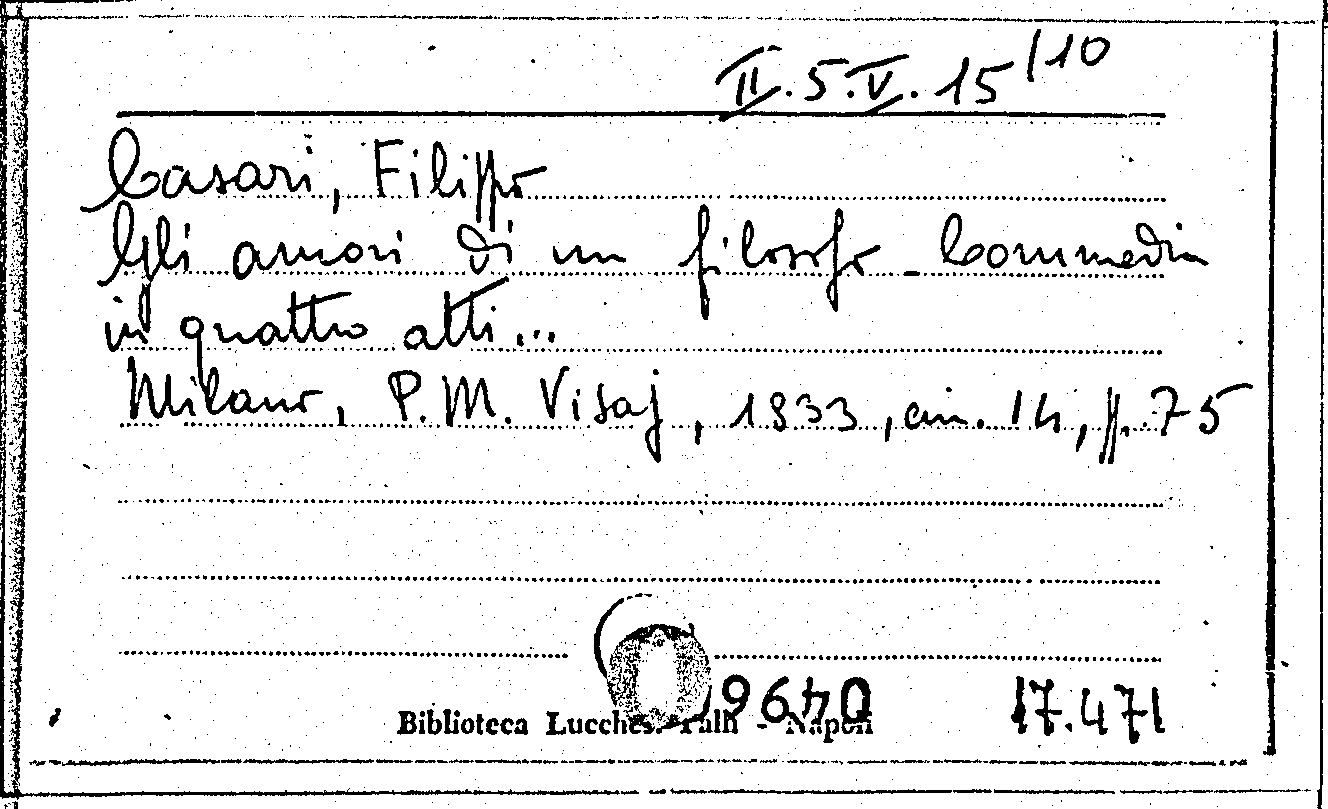 II.5.V.15/10
Casari, Filippo
Gli amori di un filosofo - Commedia
in quattro atti...
Milano, P. M. Visaj, 1833, cm. 14, pp. 75
9640 17.471
Biblioteca Lucches. Palli - Napoli